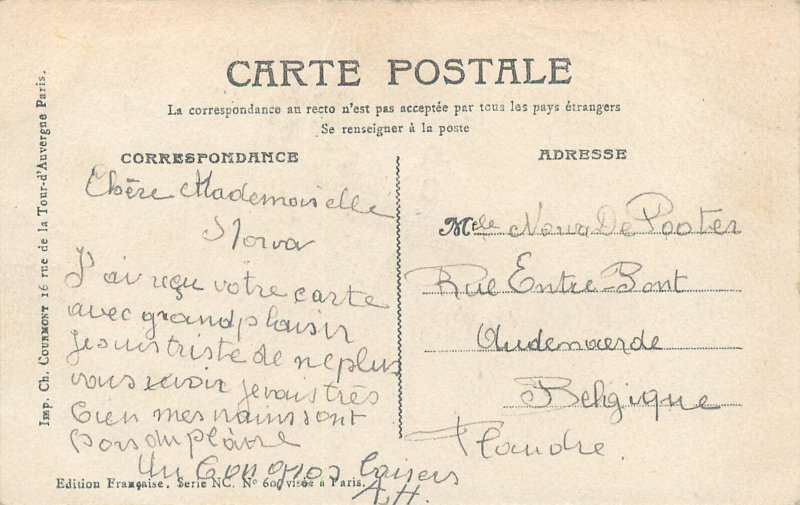 CARTE POSTALE
La correspondance au recto n'est pas acceptée par tous les pays étrangers
Se renseigner à la poste
CORRESPONDANCE
Chère Mademoiselle
Norva
J'ai reçu votre carte
avec grand plaisir
je suis triste de ne plus
vous revoir je vais très
bien mes mains sont
hors du plâtre
Un bon gros baisers
A.H.
ADRESSE
Melle Nora De Pooter
Rue Entre-Pont
Audenaerde
Belgique
Flandre.
Imp. Ch. COURMONT 16 rue de la Tour-d'Auvergne Paris.
Edition Française. Serie NC. No 60, visée à Paris.